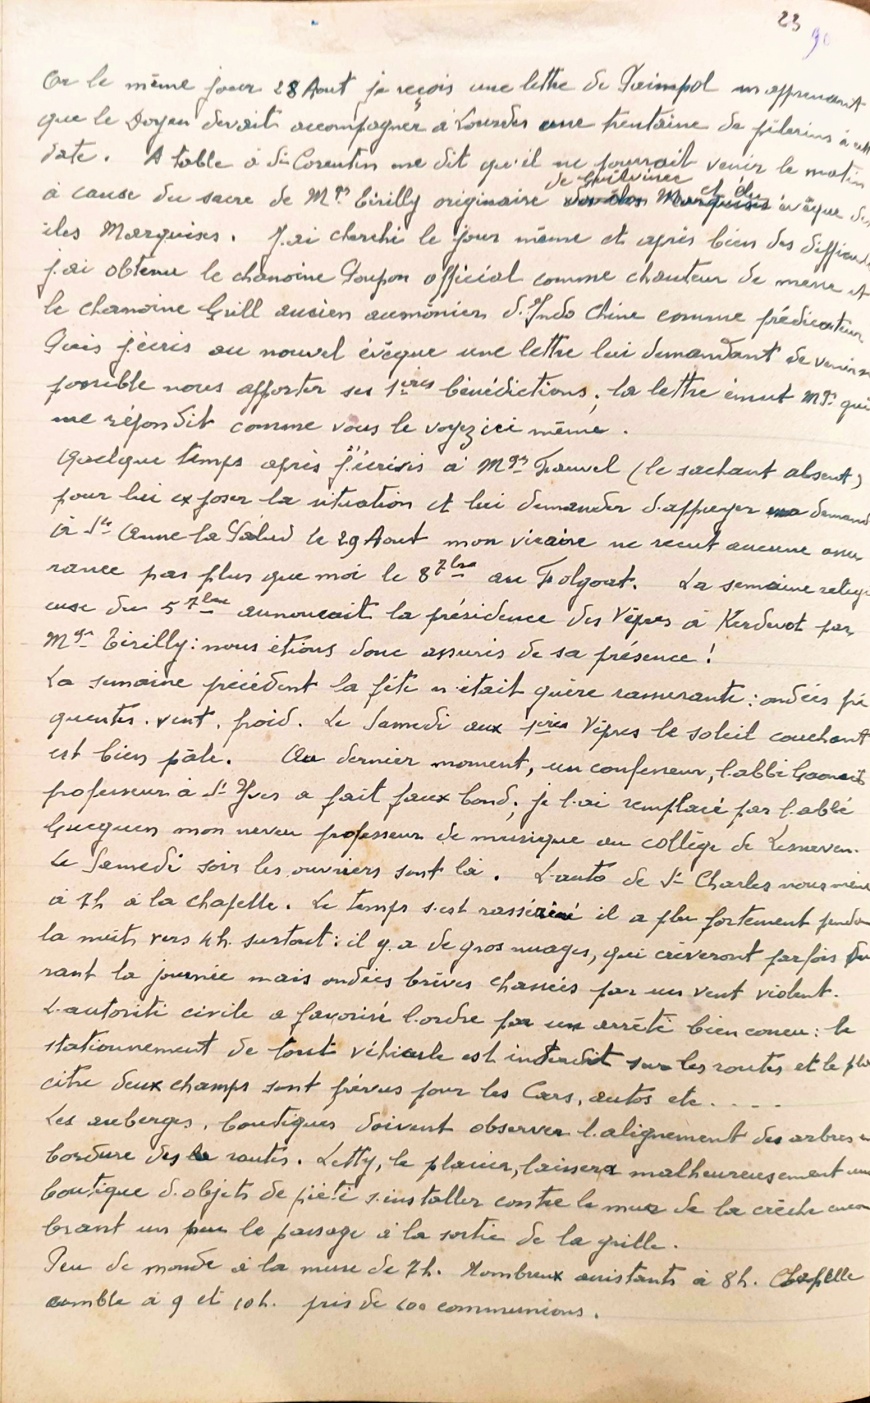 23
90
Or le même jour 28 Aout je reçois une lettre de Paimpol m'apprenant
que le Doyen devait accompagner à Lourdes une trentaine de pèlerins à cette
date. A table à St Corentin me dit qu'il ne pourrait venir le matin
de Guilvinec et du
à cause du sacre de Mgr Tirilly originaire Marquises évêque des
îles Marquises. J'ai cherché le jour même et après bien des difficul
j'ai obtenu le chanoine Poupon official comme chanteur de messe et
le chanoine Grill ancien aumônier d'Indo Chine comme prédicateur
Puis j'écris au nouvel évêque une lettre lui demandant de venir si
possible nous apporter ses 1ères bénédictions; la lettre émut Mgr qui
me répondit comme vous le voyez ici même.
Quelque temps après j'écrivis à Mgr Fauvel (le sachant absent)
pour lui exposer la situation et lui demander d'appuyer ma demand
à Ste Anne la Palud le 29 Aout mon vicaire ne recut aucune assu
rance pas plus que moi le 8 7bre au Folgoat. La semaine religi
euse du 5 7bre annoncait la présidence des Vêpres à Kerdevot par
Mgr Tirilly: nous étions donc assurés de sa présence!
La semaine précédent la fête n'était guère rassurante: ondées fré
quentes. vent, froid. Le Samedi aux 1ères Vêpres le soleil couchant
est bien pâle. Au dernier moment, un confesseur, l'abbé
professeur à St Yves a fait faux bond; je l'ai remplacé par l'abbé
Gueguen mon neveu professeur de musique au collège de Lesneven.
Le Samedi soir les ouvriers sont là. L'auto de St Charles nous mène
à 7h à la chapelle. Le temps s'est rasséréné il a plu fortement penda
la nuit vers 4h. surtout: il y a de gros nuages, qui crèveront parfois du
rant la journée mais ondées brèves chassées par un vent violent.
L'autorité civile a favorisé l'ordre par un arrêté bien concu: le
stationnement de tout véhicule est interdit sur les routes et le pla
citre deux champs sont prévus pour les Cars, autos etc....
Les auberges, boutiques doivent observer l'alignement des arbres en
bordure des routes. Letty, le placier, laissera malheureusement une
boutique d'objets de piété s'installer contre le mur de la crèche encom
brant un peu le passage à la sortie de la grille.
Peu de monde à la messe de 7h. Nombreux assistants à 8h. Chapelle
comble à 9 et 10h. près de 400 communions.